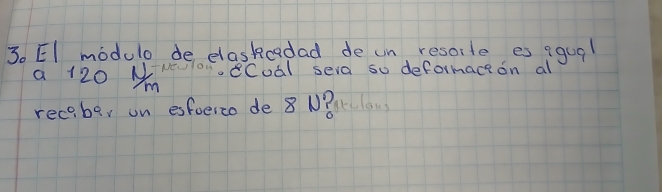 3. El módulo de elasticidad de un resorte es igual
a 120 N/m Newton. ¿Cuál será su deformación al
recibir un esfuerzo de 8 N? Newtons